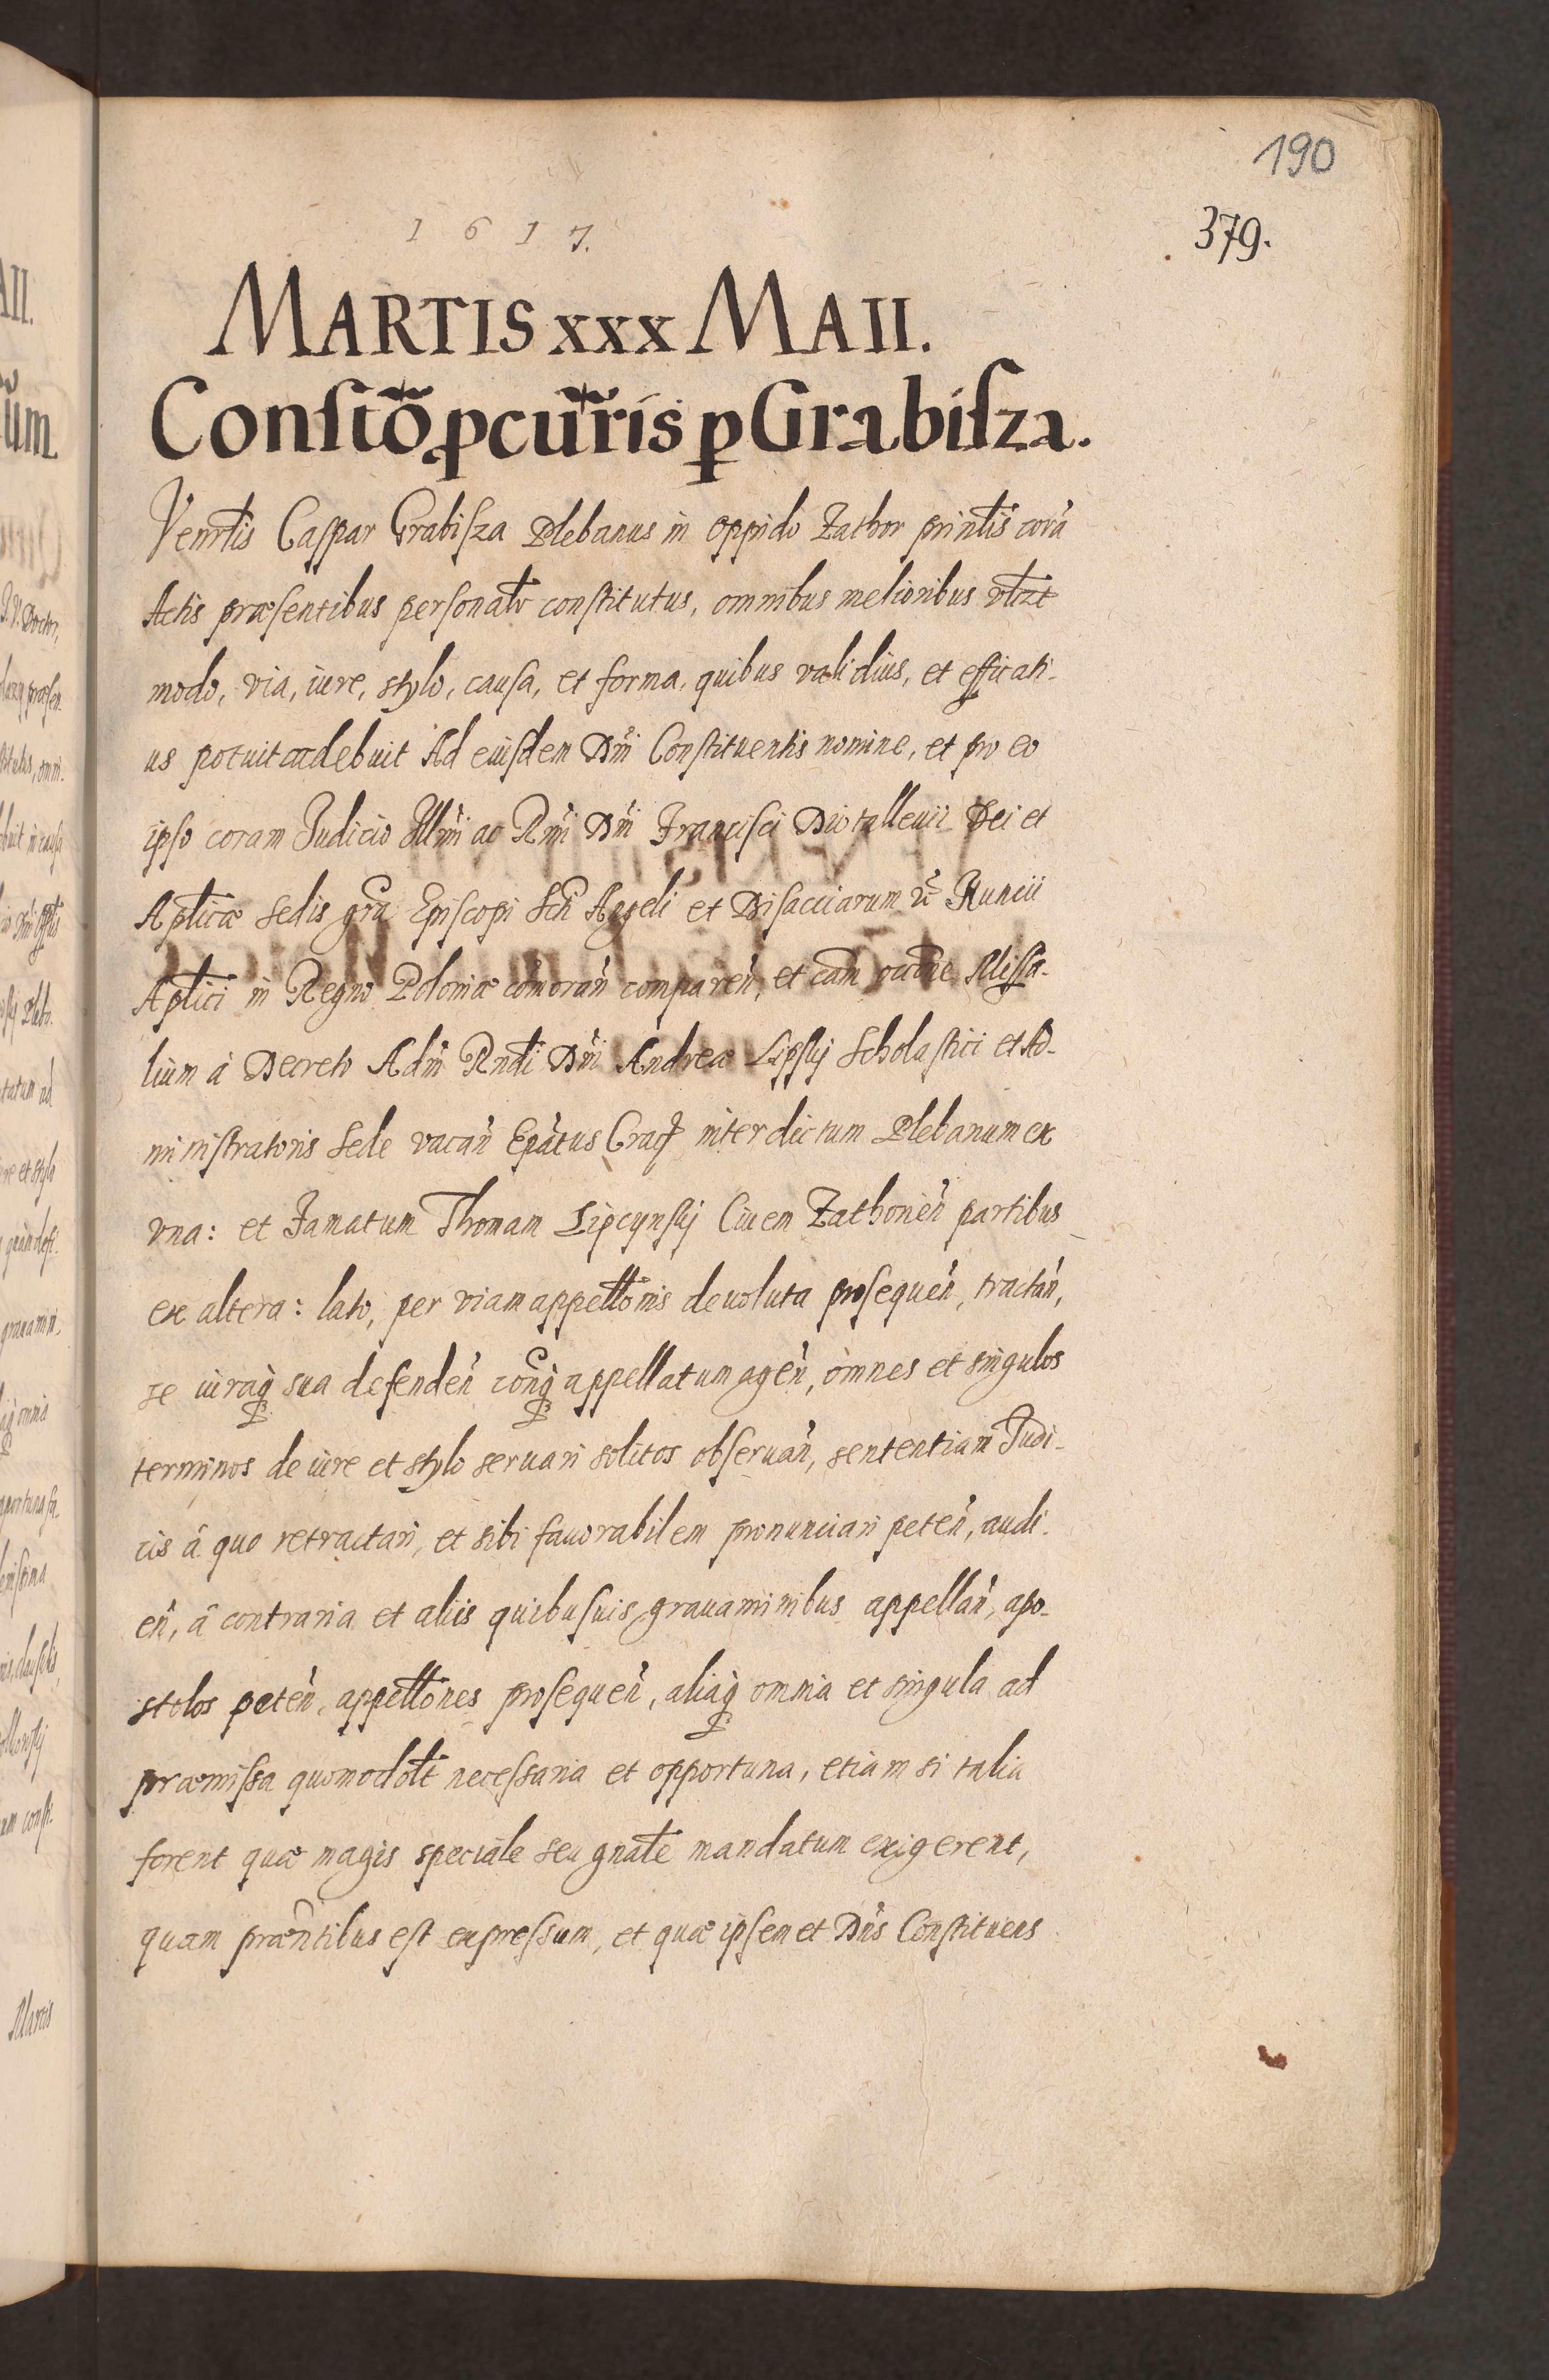 190
1 6 1 7.
379.
MARTIS xxx MAII.
Conſtõ ꝓcũris ꝑ Grabiſza.
Venrlis Caſpar Grabiſza Plebanus in oppido Zathor printis corā
Actis præsentibus personalr constitutus, omnibus melioribus
modo, via, iure, stylo, causa, et forma, quibus validius, et efficati-
us potuit ac debuit Ad eiusdem Dñi Constituentis nomine, et pro eo
ipso coram Iudicio Illmi ac Rmi Dñi Francisci Diotallevii Dei et
Aplicæ Sedis grã Episcopi Sti Angeli et Disacciarum Nuncii
Aplici in Regno Poloniæ cõmoran̄ comparen̄, et cām
lium à Decreto Adm̄ Rndi Dñi Andreæ Lipsky Scholastici et Ad-
ministratoris Sede vacan̄ Epātus Crac̄ inter dictum Plebanum ex
vna: et Famatum Thomam Lipcynsky Ciuem Zathorien̄ partibus
ex altera: lato, per viam appellonis deuoluta prosequen̄, tractan̄,
se iuraq̨ sua defenden̄ conq̨ appellatum agen̄, omnes et singulos
terminos de iure et stylo seruari solitos obseruan̄, sententiam Iudi-
cis à quo retractari, et sibi fauorabilem pronunciari peten̄, audi-
en̄, à contraria et aliis quibusuis grauaminibus appellan̄, apo-
stolos peten̄, appellones prosequen̄, aliaq̨ omnia et singula ad
præmissa quomodolt necessaria et opportuna, etiam si talia
forent quæ magis speciale seu gnale mandatum exigerent,
quam præntibus est expressum, et quæ ipsemet Dñs Constituens